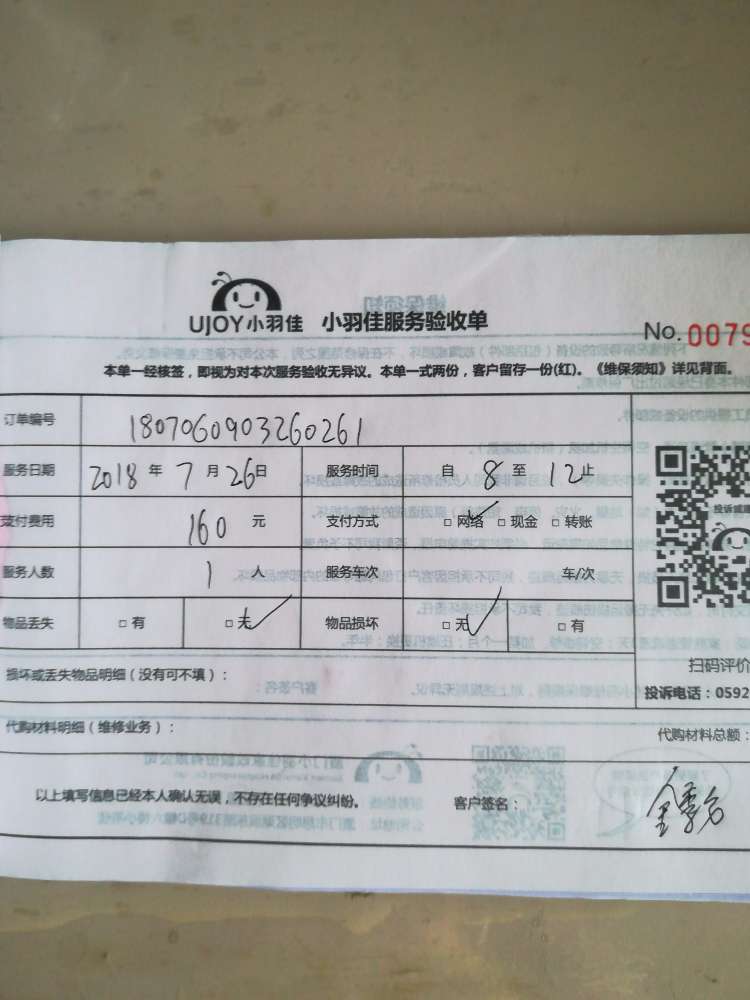 UJOY小羽佳 小羽佳服务验收单
No. 0079
本单一经核签，即视为对本次服务验收无异议。本单一式两份，客户留存一份(红)。《维保须知》详见背面。
订单编号 1807060903260261
服务日期 2018 年 7 月 26日 服务时间 自 8 至 12 止
支付费用 160 元 支付方式 □ 网络 □ 现金 □ 转账
服务人数 1 人 服务车次 车/次
物品丢失 □ 有 □ 无 物品损坏 □ 无 □ 有
扫码评价
投诉电话：0592
损坏或丢失物品明细（没有可不填）：
代购材料明细（维修业务）： 代购材料总额：
以上填写信息已经本人确认无误，不存在任何争议纠纷。 客户签名：